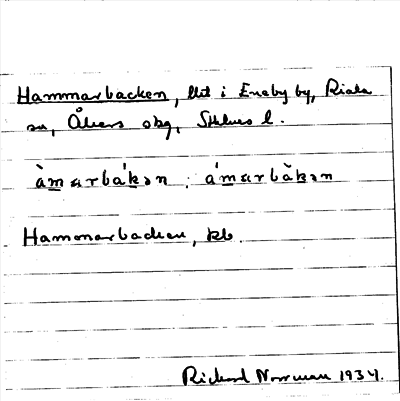 Hammarbacken, llt i Eneby by, Riala
sn, Åkers skg, Sthlms l.
àmarbákən : ámarbàkən
Hammarbacken, kb.
Richard Norrman 1934.